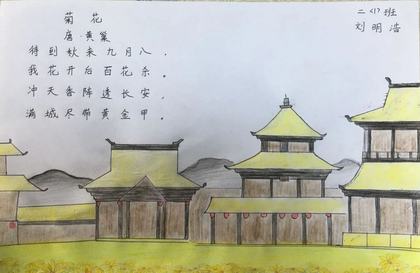 菊花
唐·黄巢
得到秋来九月八，
我花开后百花杀。
冲天香阵透长安，
满城尽带黄金甲。
二〈1〉班
刘明浩